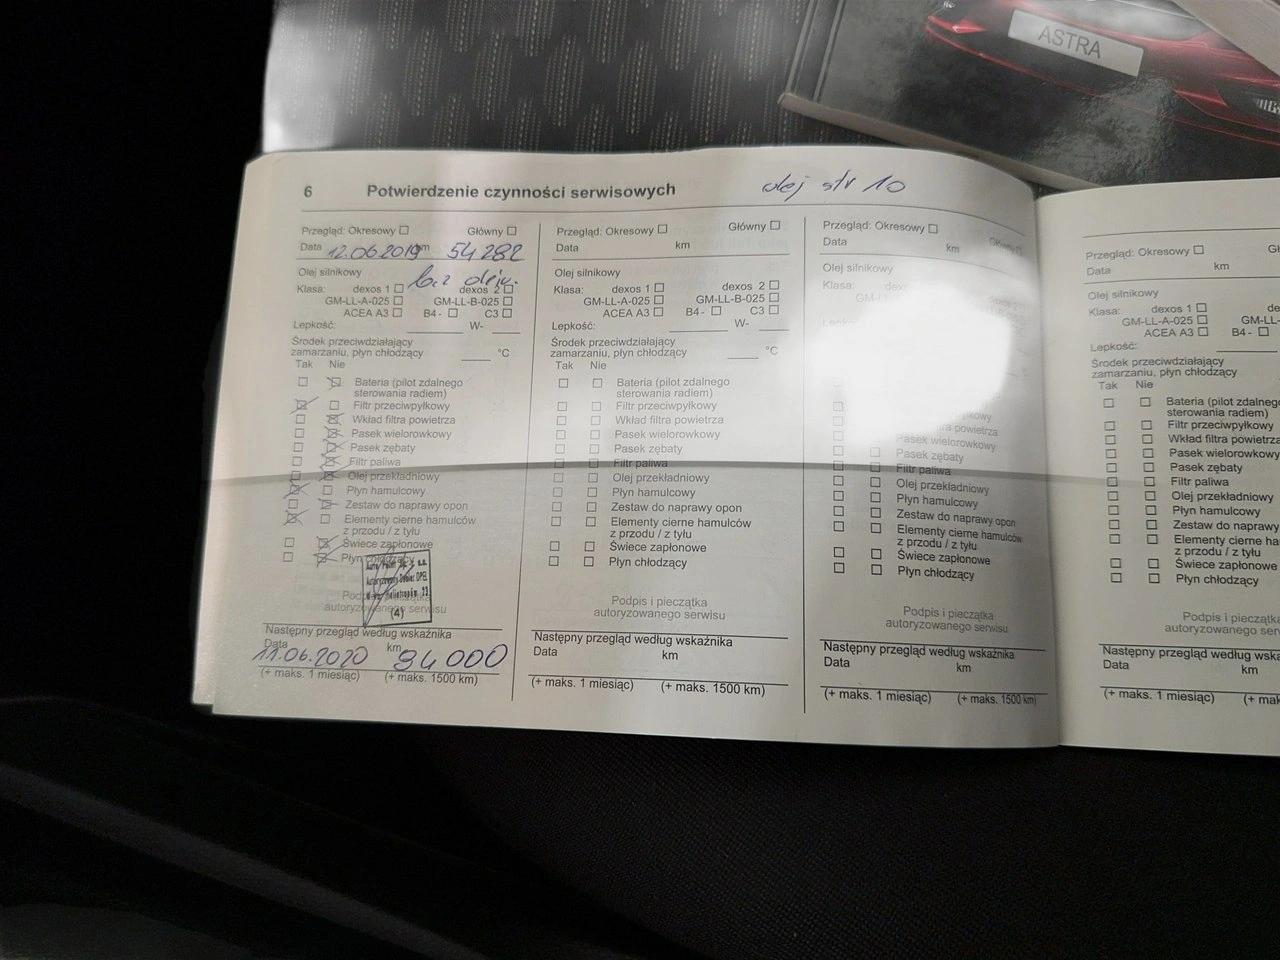 ASTRA
6 Potwierdzenie czynności serwisowych olej str 10
Przegląd: Okresowy ☐ Główny ☐
Data 12.06.2019 km 54 282
Olej silnikowy bez oleju.
Klasa: dexos 1 ☐ dexos 2 ☐
GM-LL-A-025 ☐ GM-LL-B-025 ☐
ACEA A3 ☐ B4 - ☐ C3 ☐
Lepkość: W-
Środek przeciwdziałający
zamarzaniu, płyn chłodzący °C
Tak Nie
☐ ☒ Bateria (pilot zdalnego
sterowania radiem)
☒ ☐ Filtr przeciwpyłkowy
☐ ☒ Wkład filtra powietrza
☐ ☒ Pasek wielorowkowy
☐ ☒ Pasek zębaty
☐ ☒ Filtr paliwa
☐ ☒ Olej przekładniowy
☒ ☐ Płyn hamulcowy
☐ ☒ Zestaw do naprawy opon
☒ ☐ Elementy cierne hamulców
z przodu / z tyłu
☐ ☒ Świece zapłonowe
☐ ☒ Płyn chłodzący
OPEL
(4)
Podpis i pieczątka
autoryzowanego serwisu
Następny przegląd według wskaźnika
Data 11.06.2020 km 84 000
(+ maks. 1 miesiąc) (+ maks. 1500 km)
Przegląd: Okresowy ☐ Główny ☐
Data km
Olej silnikowy
Klasa: dexos 1 ☐ dexos 2 ☐
GM-LL-A-025 ☐ GM-LL-B-025 ☐
ACEA A3 ☐ B4 - ☐ C3 ☐
Lepkość: W-
Środek przeciwdziałający
zamarzaniu, płyn chłodzący °C
Tak Nie
☐ ☐ Bateria (pilot zdalnego
sterowania radiem)
☐ ☐ Filtr przeciwpyłkowy
☐ ☐ Wkład filtra powietrza
☐ ☐ Pasek wielorowkowy
☐ ☐ Pasek zębaty
☐ ☐ Filtr paliwa
☐ ☐ Olej przekładniowy
☐ ☐ Płyn hamulcowy
☐ ☐ Zestaw do naprawy opon
☐ ☐ Elementy cierne hamulców
z przodu / z tyłu
☐ ☐ Świece zapłonowe
☐ ☐ Płyn chłodzący
Podpis i pieczątka
autoryzowanego serwisu
Następny przegląd według wskaźnika
Data km
(+ maks. 1 miesiąc) (+ maks. 1500 km)
Przegląd: Okresowy ☐ Główny ☐
Data km
Olej silnikowy
Pasek wielorowkowy
☐ ☐ Pasek zębaty
☐ ☐ Filtr paliwa
☐ ☐ Olej przekładniowy
☐ ☐ Płyn hamulcowy
☐ ☐ Zestaw do naprawy opon
☐ ☐ Elementy cierne hamulców
z przodu / z tyłu
☐ ☐ Świece zapłonowe
☐ ☐ Płyn chłodzący
Podpis i pieczątka
autoryzowanego serwisu
Następny przegląd według wskaźnika
Data km
(+ maks. 1 miesiąc) (+ maks. 1500 km)
Przegląd: Okresowy ☐
Data km
Olej silnikowy
Klasa: dexos 1 ☐
GM-LL-A-025 ☐ GM-LL-
ACEA A3 ☐ B4 - ☐
Lepkość:
Środek przeciwdziałający
zamarzaniu, płyn chłodzący
Tak Nie
☐ ☐ Bateria (pilot zdalnego
sterowania radiem)
☐ ☐ Filtr przeciwpyłkowy
☐ ☐ Wkład filtra powietrza
☐ ☐ Pasek wielorowkowy
☐ ☐ Pasek zębaty
☐ ☐ Filtr paliwa
☐ ☐ Olej przekładniowy
☐ ☐ Płyn hamulcowy
☐ ☐ Zestaw do naprawy
☐ ☐ Elementy cierne
z przodu / z tyłu
☐ ☐ Świece zapłonowe
☐ ☐ Płyn chłodzący
Podpis i pieczątka
autoryzowanego
Następny przegląd według
Data km
(+ maks. 1 miesiąc)